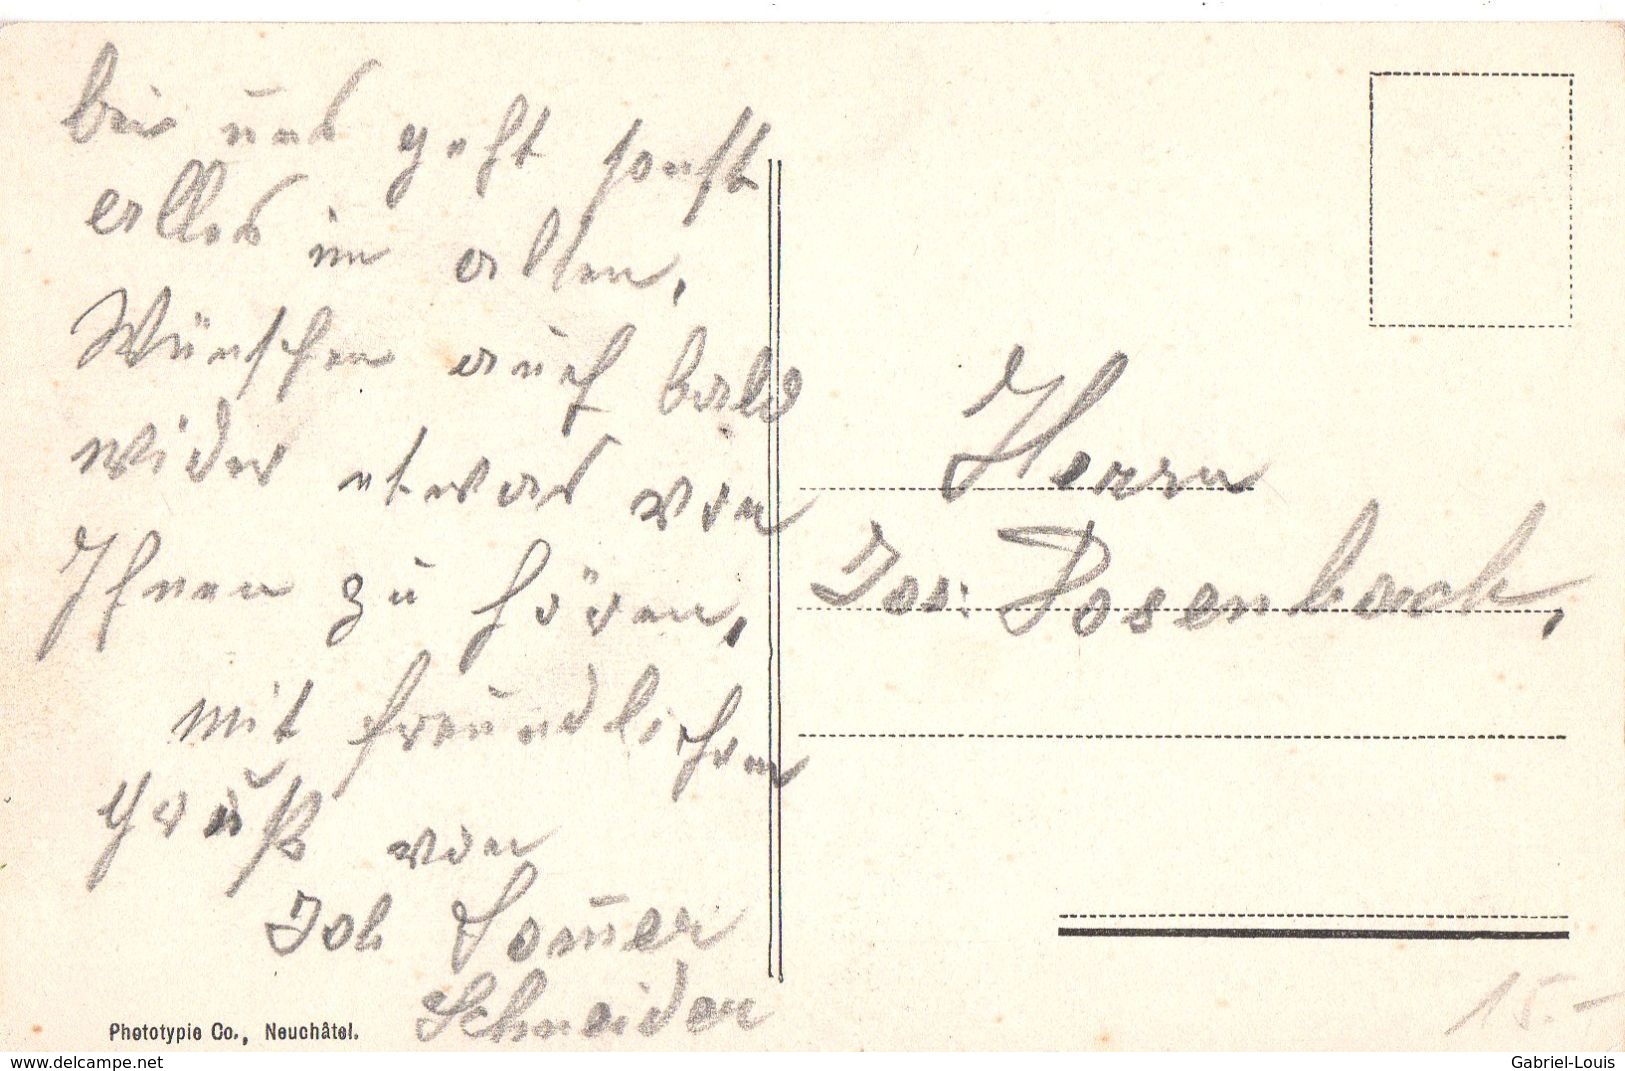 bei uns geht sonst
alles im alten,
Wünschen auch bald
wider etwas von
Ihnen zu hören,
mit freundlichem
Gruß von
Joh Somer
Schneider
Herrn
Jos: Rosenbach,
Phototypie Co., Neuchâtel.
15.-
www.delcampe.net
Gabriel-Louis